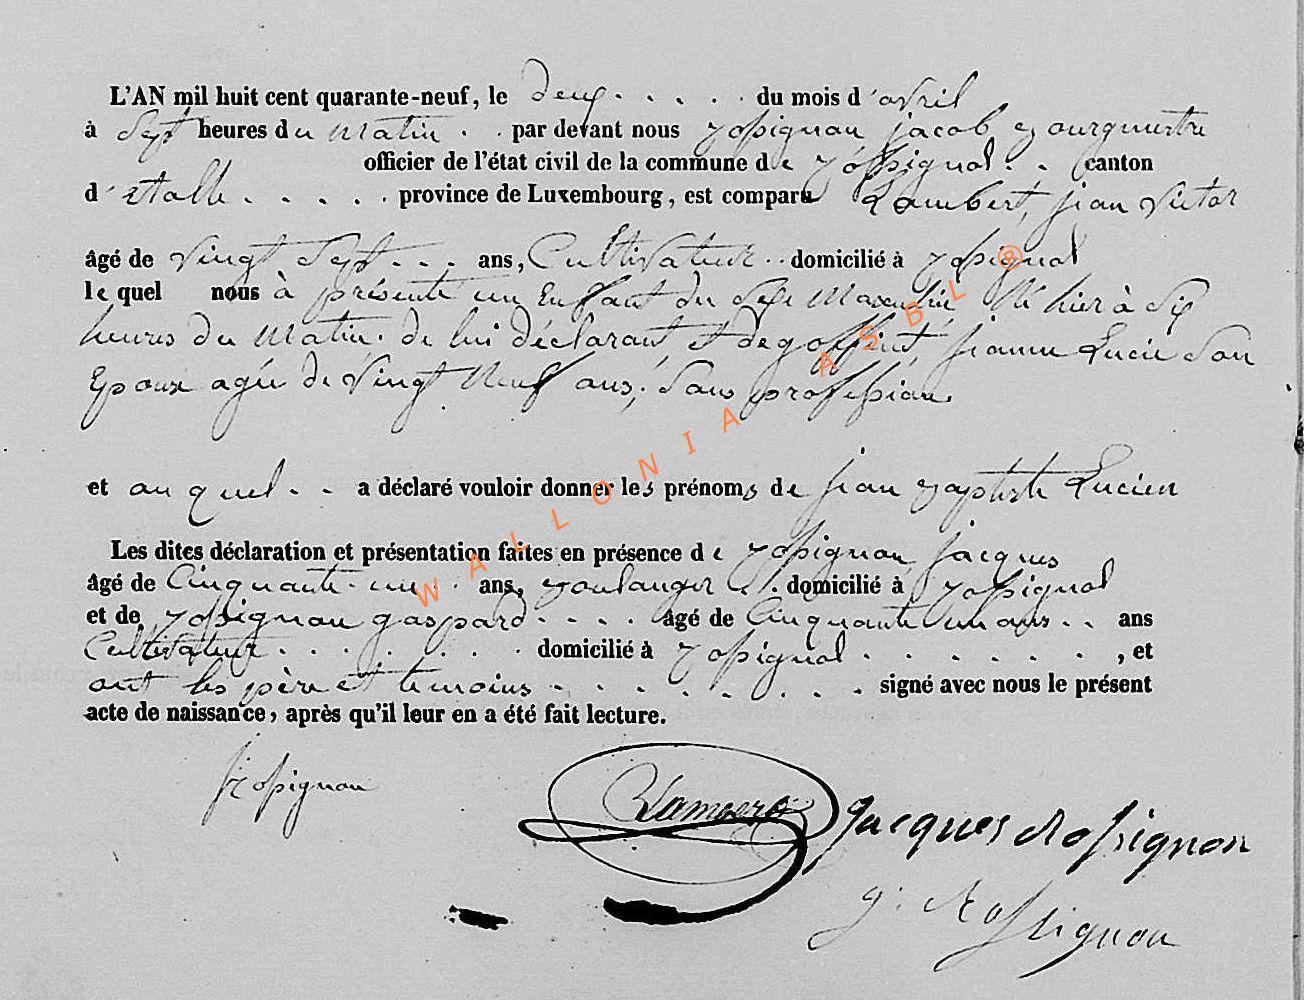 L'AN mil huit cent quarante-neuf, le deux . . . . . du mois d'avril
à Sept heures du Matin . . par devant nous Rossignon jacob Bourgmestre
officier de l'état civil de la commune de Rossignol . . canton
d'Etalle . . . . . province de Luxembourg, est comparu Lambert, jean Victor
âgé de Vingt Sept . . . ans, Cultivateur . . domicilié à Rossignol
le quel nous à présenté un Enfant du Sexe Masculin Né hier à Six
heures du Matin. de lui déclarant et de goffinet, jeanne Lucie Son
Epouse agée de Vingt Neuf ans, Sans profession.
et auquel . . a déclaré vouloir donner les prénoms de jean Baptiste Lucien
Les dites déclaration et présentation faites en présence de Rossignon jacques
âgé de Cinquante un . . ans, Boulanger . domicilié à Rossignol
et de Rossignon gaspard . . . . âgé de Cinquante un ans . . ans
Cultivateur . . . . . . . domicilié à Rossignol . . . . . . . , et
ont les père et temoins . . . . . . . . . signé avec nous le présent
acte de naissance, après qu'il leur en a été fait lecture.
Rossignon
Lambert
Jacques Rossignon
g. Rossignon
WALLONIA ASBL ®